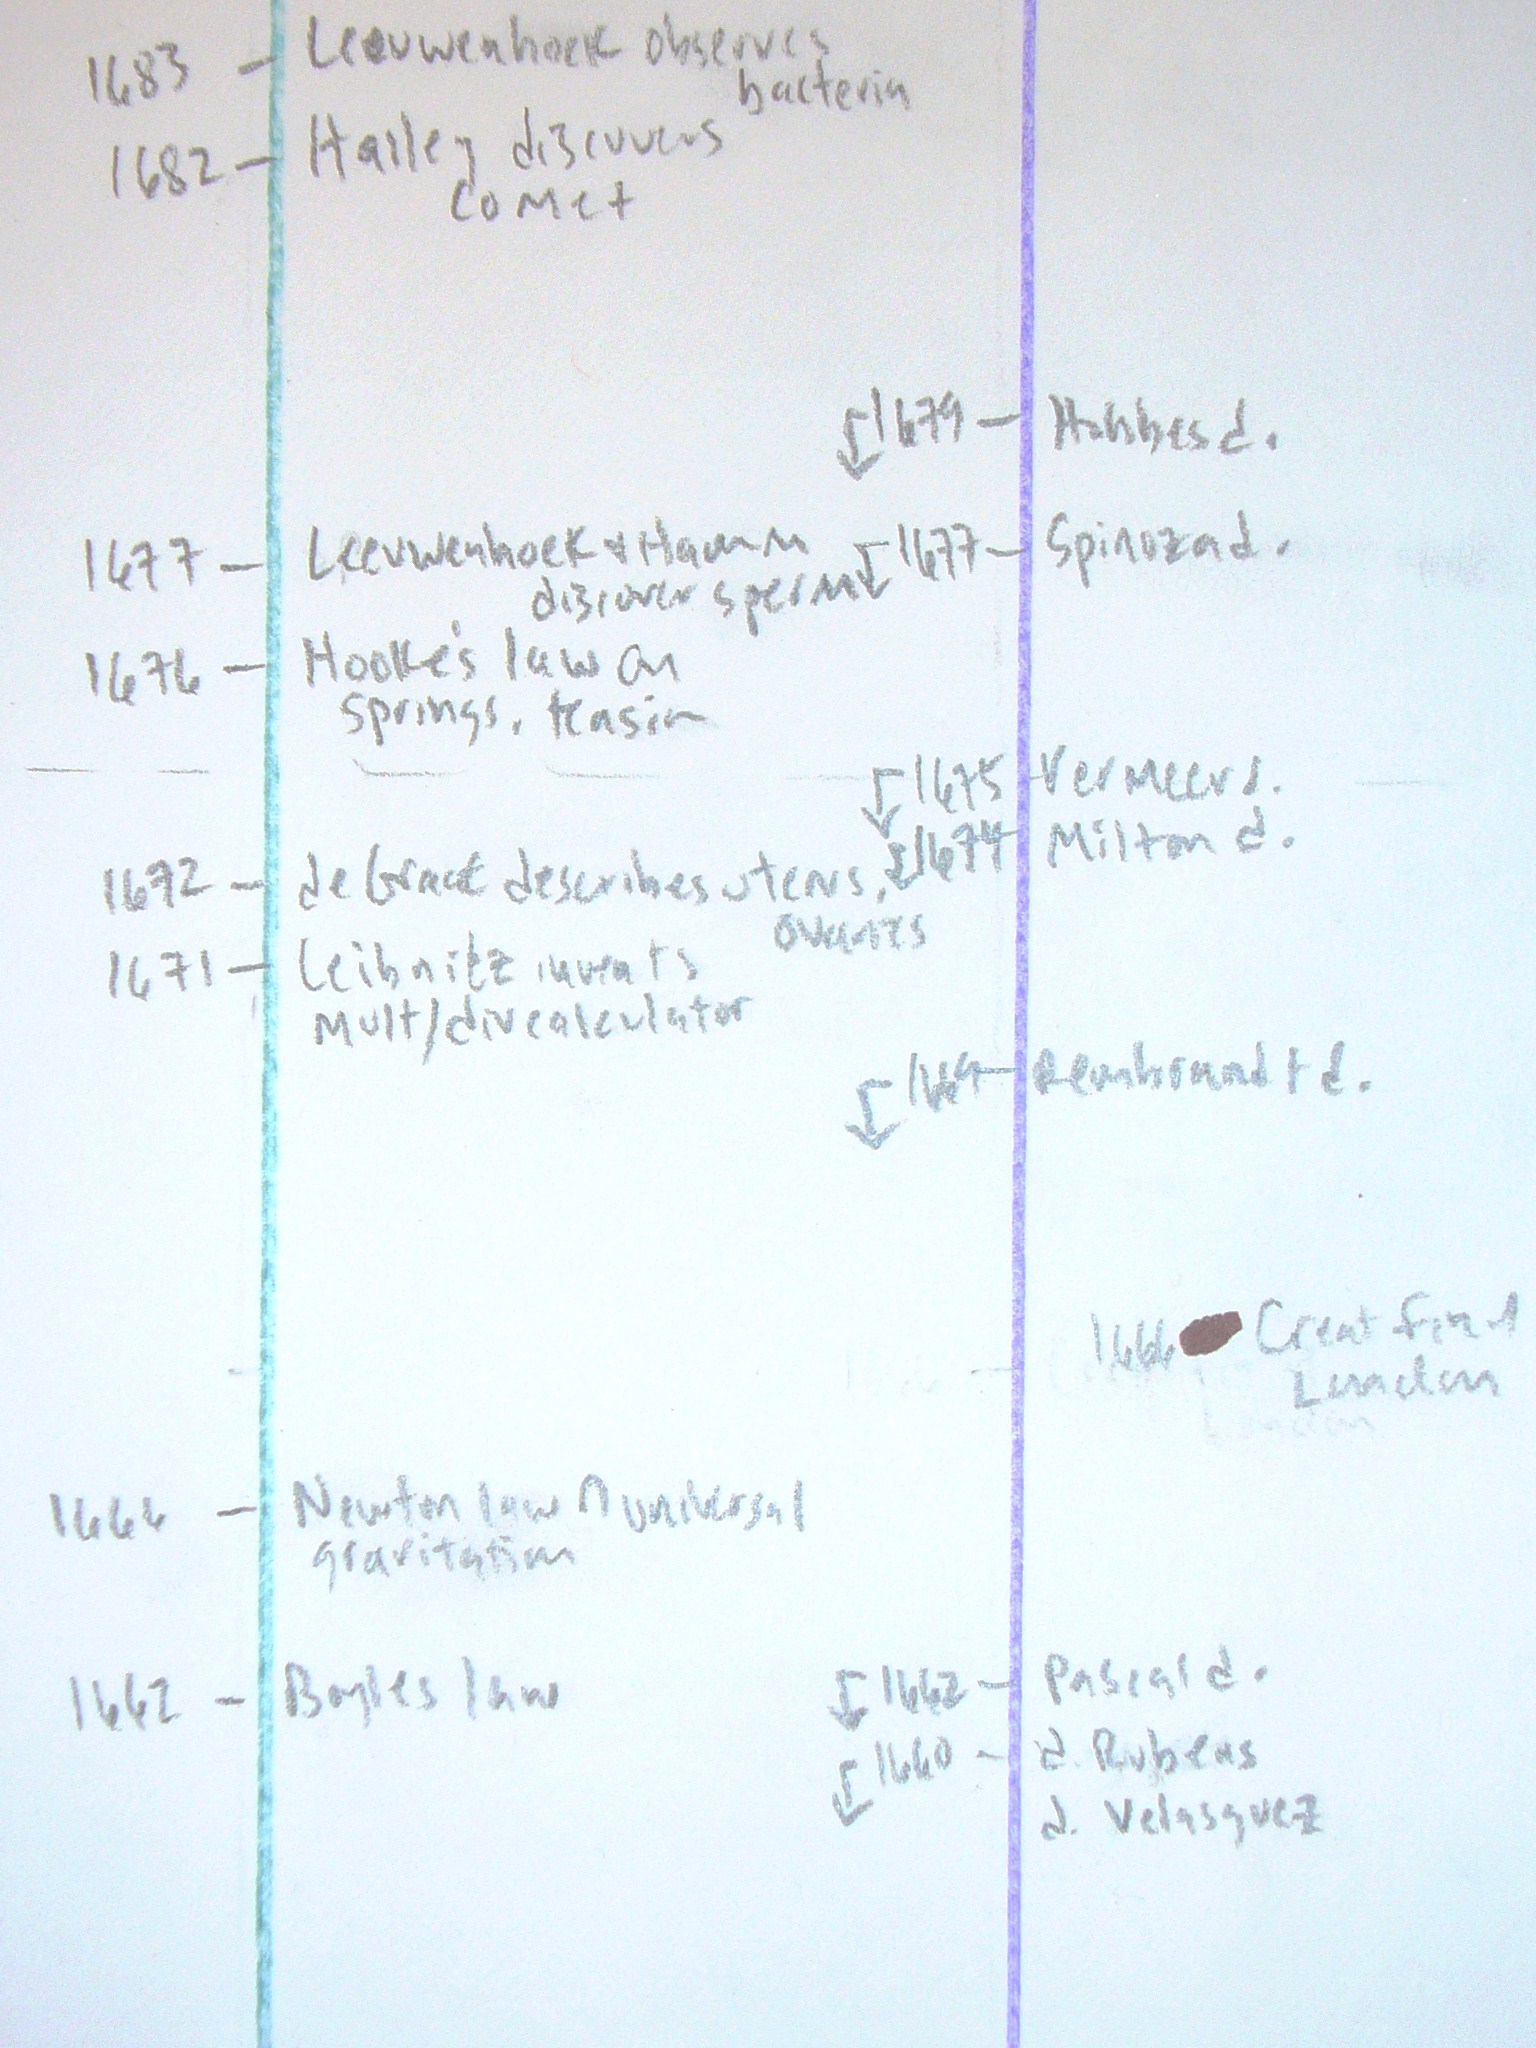 1683 - Leeuwenhoek observes
bacteria
1682 - Halley discovers
comet
1679 - Hobbes d.
1677 - Leeuwenhoek & Hamm
discover sperm
1677 - Spinoza d.
1676 - Hooke's law on
springs, tension
1675 - Vermeer d.
1674 Milton d.
1672 - de Graek describes uterus,
ovaries
1671 - Leibnitz invents
mult/div calculator
1669 - Rembrandt d.
1666 Great fire of
London
1666 - Newton law universal
gravitation
1662 - Boyles law
1662 - Pascal d.
1660 - d. Rubens
d. Velasquez